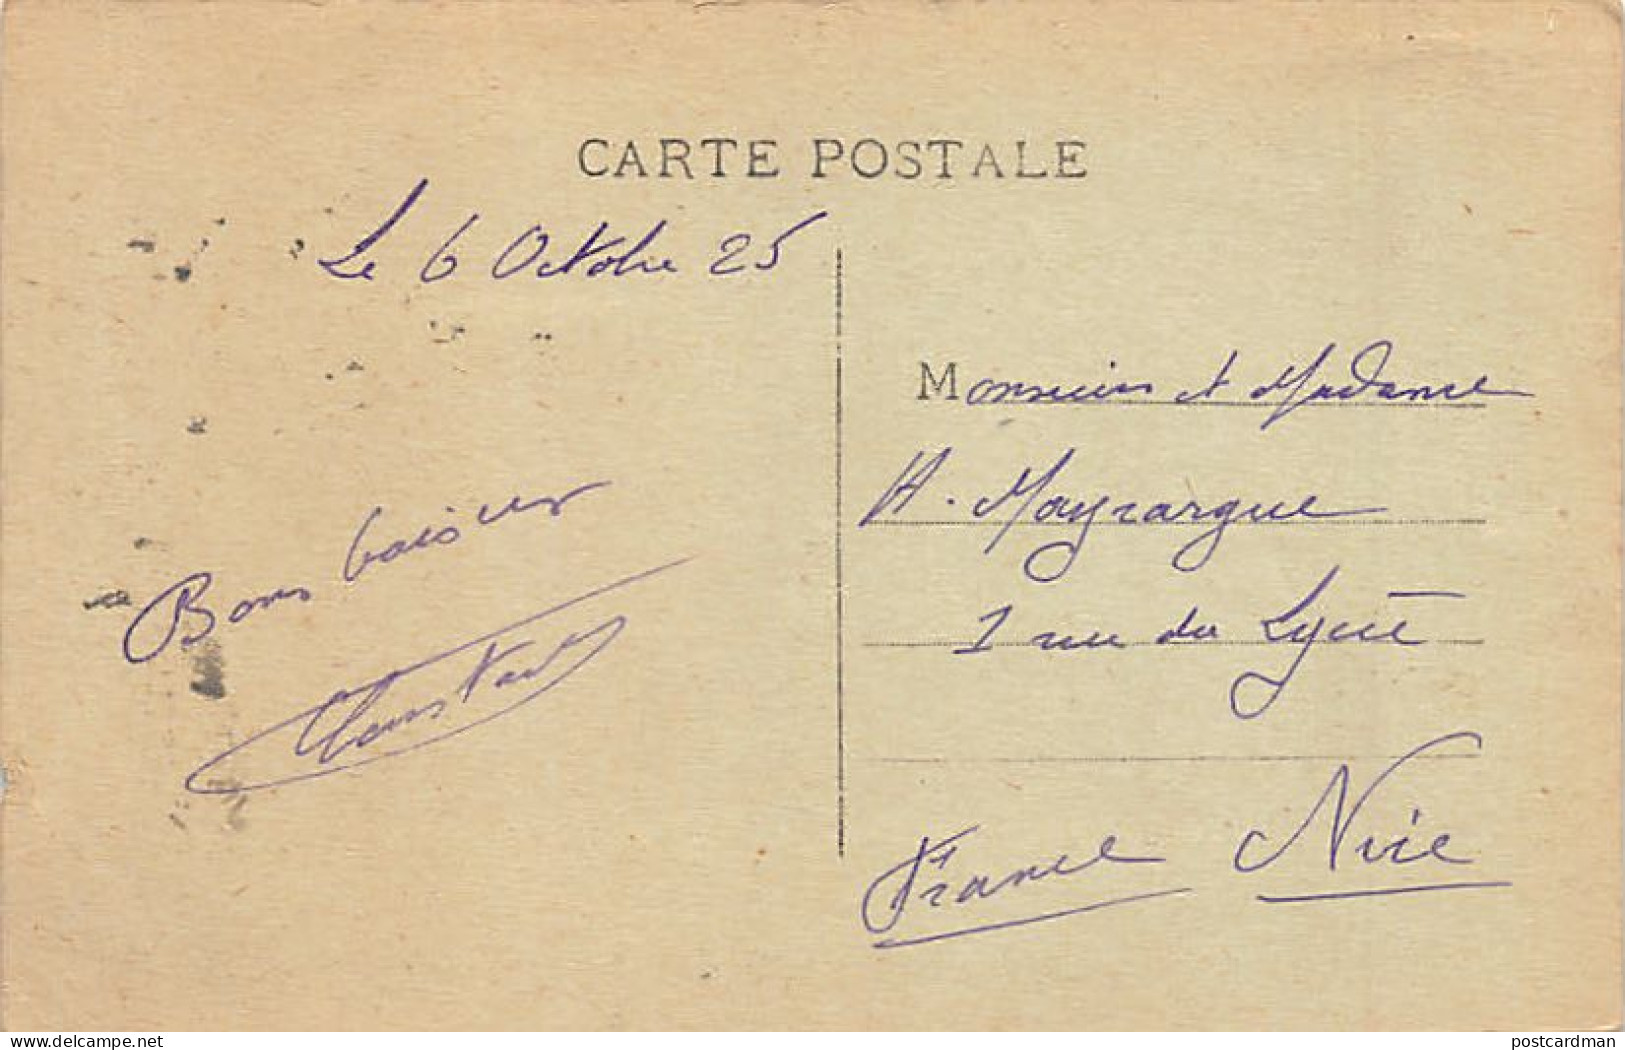 CARTE POSTALE
Le 6 Octobre 25
Bons baisers
Monsieur et Madame
A. Mayrargue
1 rue du Lycée
France Nice
delcampe.net
postcardman